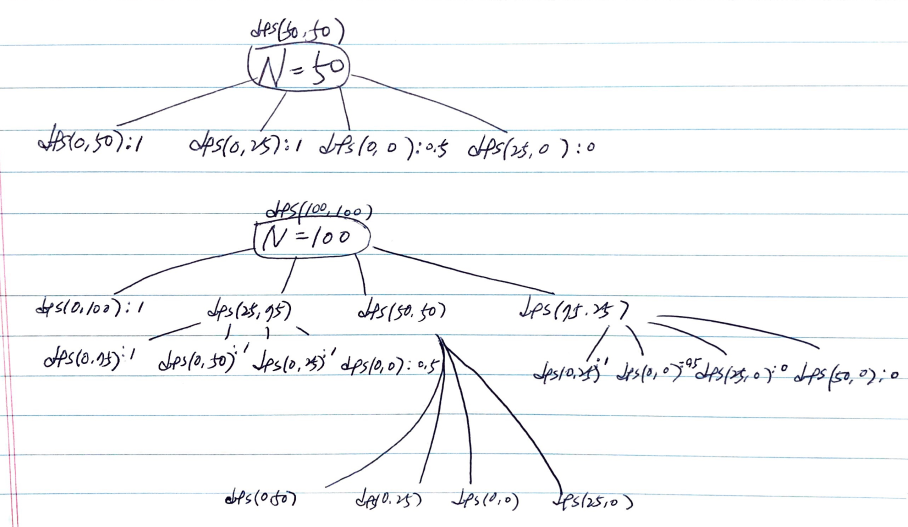 dfs(50,50)
N=50
dfs(0,50):1 dfs(0,25):1 dfs(0,0):0.5 dfs(25,0):0
dfs(100,100)
N=100
dfs(0,100):1 dfs(25,75) dfs(50,50) dfs(75,25)
dfs(0,75):1 dfs(0,50):1 dfs(0,25):1 dfs(0,0):0.5 dfs(0,25):1 dfs(0,0):0.5 dfs(25,0):0 dfs(50,0):0
dfs(0,50) dfs(0,25) dfs(0,0) dfs(25,0)